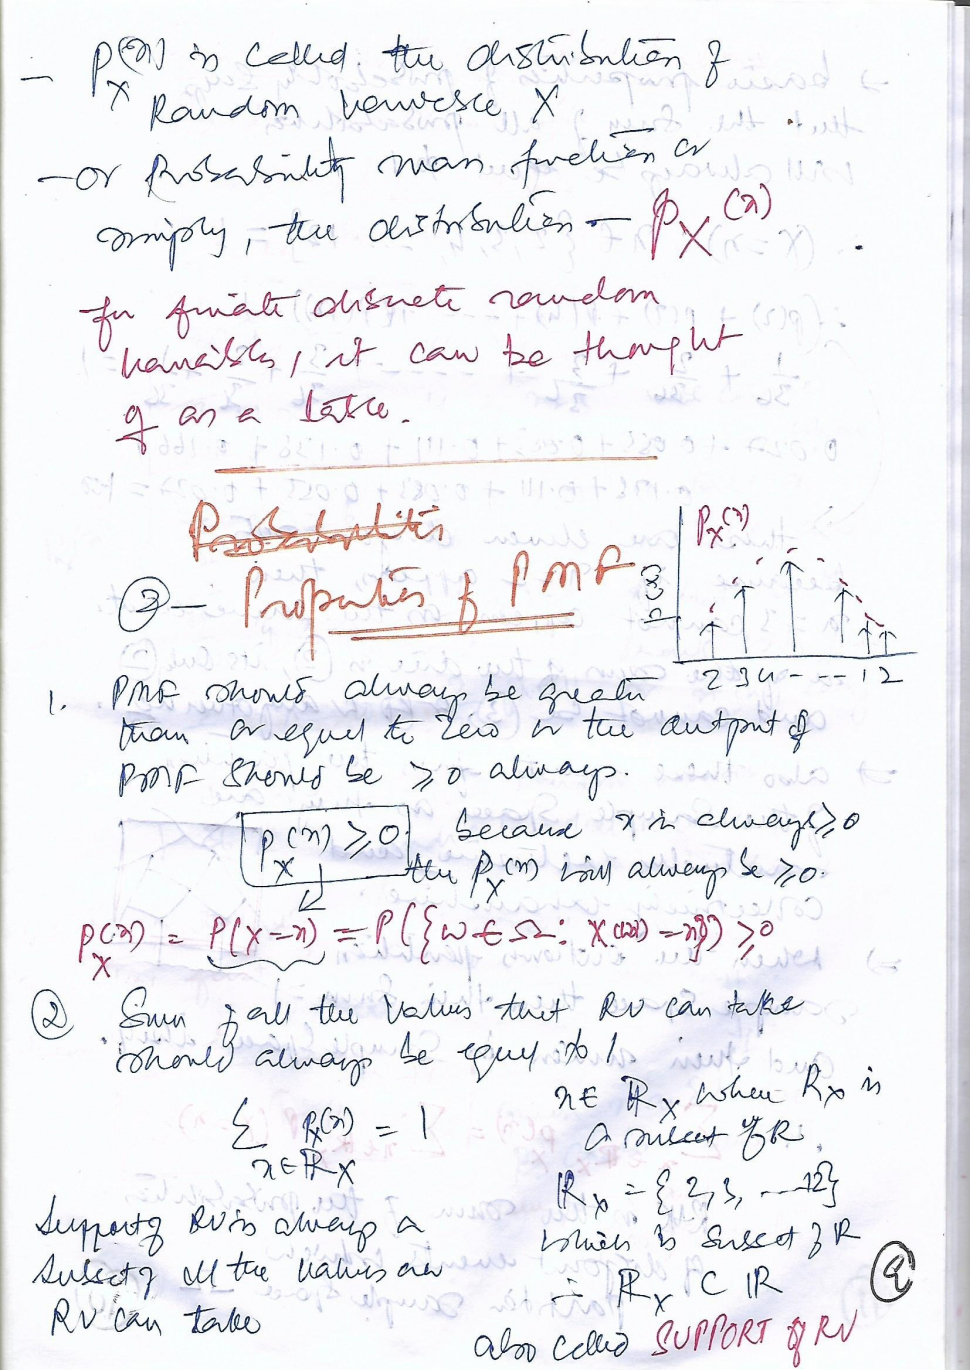 - P_X(x) is called the distribution of
Random variable X
- or Probability mass function or
simply, the distribution - P_X(x)
- for finite discrete random
variables, it can be thought
of as a table.
Probabilities
② - Properties of PMF
P_X(x)
P(X=x)
2 3 4 - - -- 12
1. PMF should always be greater
than or equal to zero or the output of
PMF should be ≥ 0 always.
P_X(x) ≥ 0 because x is always ≥ 0
the P_X(x) will always be ≥ 0.
P_X(x) = P(X=x) = P({ω ∈ Ω : X(ω) = x}) ≥ 0
② Sum of all the values that RV can take
should always be equal to 1
x ∈ ℝ_X where R_X is
a subset of R.
∑_{x ∈ ℝ_X} P_X(x) = 1
ℝ_X = {2, 3, ---- 12}
which is subset of R
∴ ℝ_X ⊂ ℝ
also called SUPPORT of RV
Support of RV is always a
subset of all the values an
RV can take
9